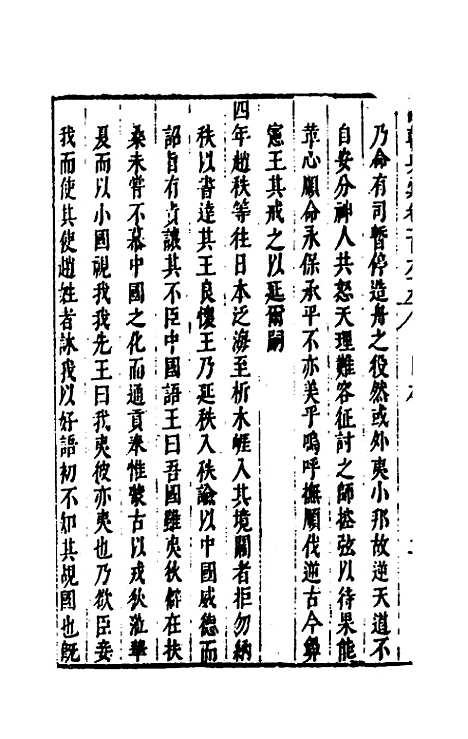 乃命有司暫停造舟之役然或外夷小邦故逆天道不
自安分神人共怒天理難容征討之師控弦以待果能
革心順命永保承平不亦美乎嗚呼撫順伐逆古今彜
憲王其戒之以延爾嗣
四年趙秩等往日本泛海至析木崕入其境關者拒勿納
秩以書達其王良懷王乃延秩入秩諭以中國威德而
詔旨有責讓其不臣中國語王曰吾國雖夷狄僻在扶
桑未嘗不慕中國之化而通貢奉惟蒙古以戎狄涖華
夏而以小國視我我先王曰我夷彼亦夷也乃欲臣妾
我而使其使趙姓者訹我以好語初不知其覘國也旣